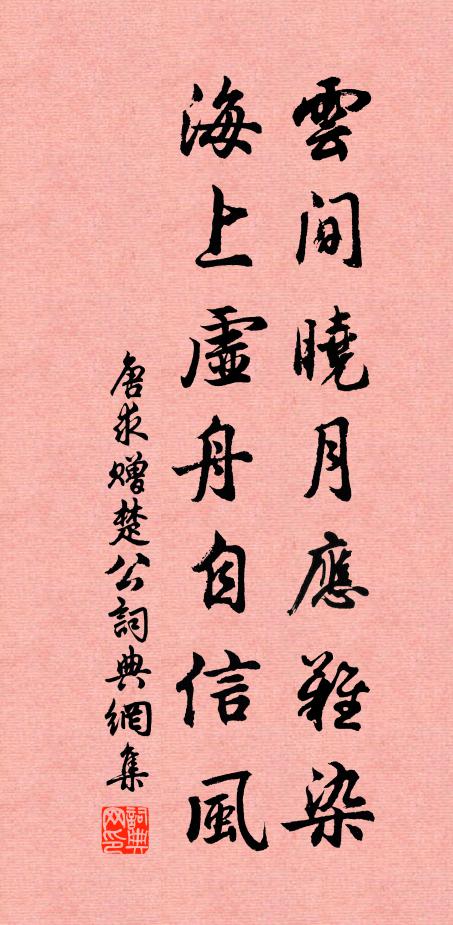 雲間曉月應難染
海上虛舟自信風
唐求贈楚公詞典網集
詞典网印